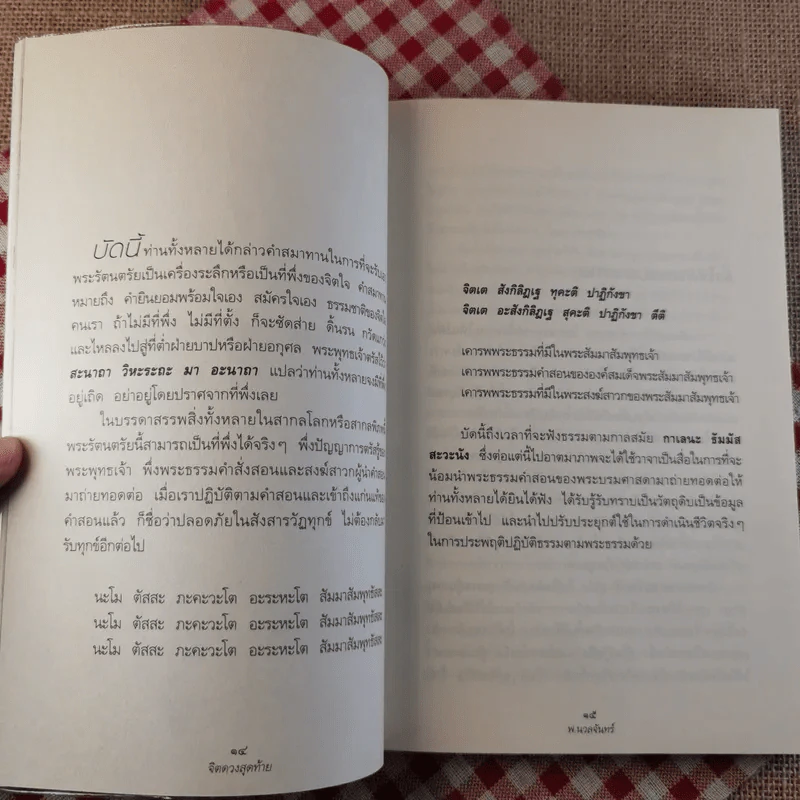 บัดนี้ ท่านทั้งหลายได้กล่าวคำสมาทานในการที่จะรับเอา
พระรัตนตรัยเป็นเครื่องระลึกหรือเป็นที่พึ่งของจิตใจ คำสมาทาน
หมายถึง คำยินยอมพร้อมใจเอง สมัครใจเอง ธรรมชาติของจิตใจ
คนเรา ถ้าไม่มีที่พึ่ง ไม่มีที่ตั้ง ก็จะซัดส่าย ดิ้นรน กวัดแกว่ง
และไหลลงไปสู่ที่ต่ำฝ่ายบาปหรือฝ่ายอกุศล พระพุทธเจ้าตรัสไว้ว่า
สะนาถา วิหะระถะ มา อะนาถา แปลว่าท่านทั้งหลายจงมีที่พึ่ง
อยู่เถิด อย่าอยู่โดยปราศจากที่พึ่งเลย
ในบรรดาสรรพสิ่งทั้งหลายในสากลโลกหรือสากลพิภพนี้
พระรัตนตรัยนี้สามารถเป็นที่พึ่งได้จริงๆ พึ่งปัญญาการตรัสรู้ของ
พระพุทธเจ้า พึ่งพระธรรมคำสั่งสอนและสงฆ์สาวกผู้นำคำสอน
มาถ่ายทอดต่อ เมื่อเราปฏิบัติตามคำสอนและเข้าถึงแก่นแท้ของ
คำสอนแล้ว ก็ชื่อว่าปลอดภัยในสังสารวัฏทุกข์ ไม่ต้องกลับมา
รับทุกข์อีกต่อไป
นะโม ตัสสะ ภะคะวะโต อะระหะโต สัมมาสัมพุทธัสสะ
นะโม ตัสสะ ภะคะวะโต อะระหะโต สัมมาสัมพุทธัสสะ
นะโม ตัสสะ ภะคะวะโต อะระหะโต สัมมาสัมพุทธัสสะ
๑๔
จิตดวงสุดท้าย
จิตเต สังกิลิฏเฐ ทุคะติ ปาฏิกังขา
จิตเต อะสังกิลิฏเฐ สุคะติ ปาฏิกังขา ตีติ
เคารพพระธรรมที่มีในพระสัมมาสัมพุทธเจ้า
เคารพพระธรรมคำสอนขององค์สมเด็จพระสัมมาสัมพุทธเจ้า
เคารพพระธรรมที่มีในพระสงฆ์สาวกของพระสัมมาสัมพุทธเจ้า
บัดนี้ถึงเวลาที่จะฟังธรรมตามกาลสมัย กาเลนะ ธัมมัส
สะวะนัง ซึ่งต่อแต่นี้ไปอาตมาภาพจะได้ใช้วาจาเป็นสื่อในการที่จะ
น้อมนำพระธรรมคำสอนของพระบรมศาสดามาถ่ายทอดต่อให้
ท่านทั้งหลายได้ยินได้ฟัง ได้รับรู้รับทราบเป็นวัตถุดิบเป็นข้อมูล
ที่ป้อนเข้าไป และนำไปปรับประยุกต์ใช้ในการดำเนินชีวิตจริงๆ
ในการประพฤติปฏิบัติธรรมตามพระธรรมด้วย
๑๕
พ.นวลจันทร์